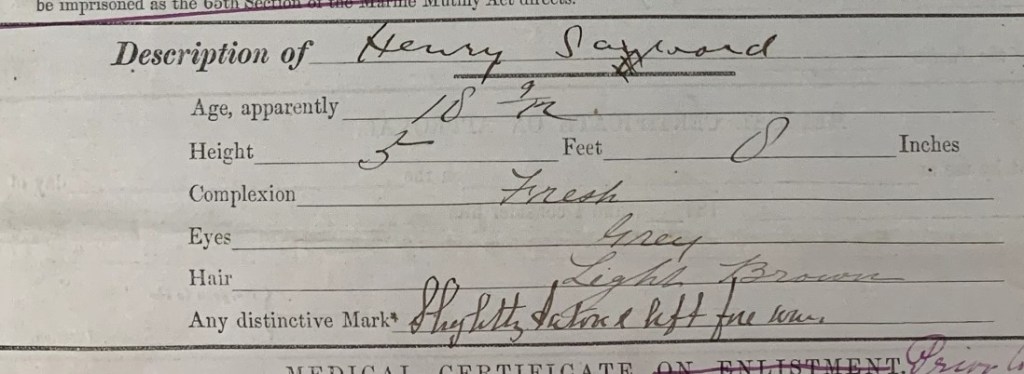 be imprisoned as the 65th Section of the Marine Mutiny Act directs.
Description of Henry Sayward
Age, apparently 18 9/12
Height 5 Feet 8 Inches
Complexion Fresh
Eyes Grey
Hair Light Brown
Any distinctive Mark* left fore arm
MEDICAL CERTIFICATE ON ENLISTMENT. Prior